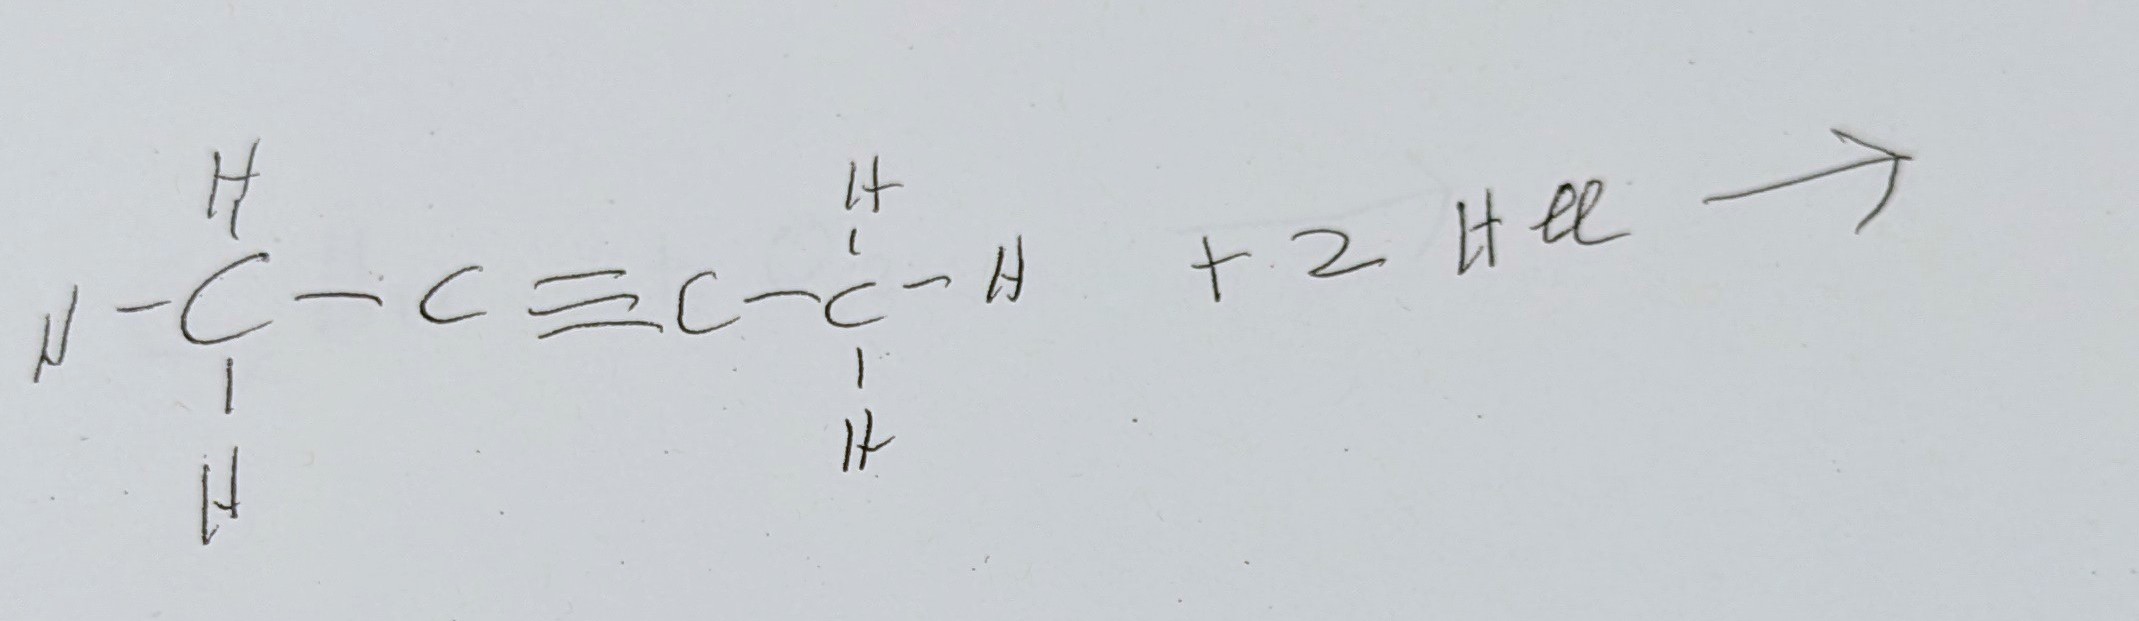 H H
H - C - C ≡ C - C - H + 2 HCl →
H H